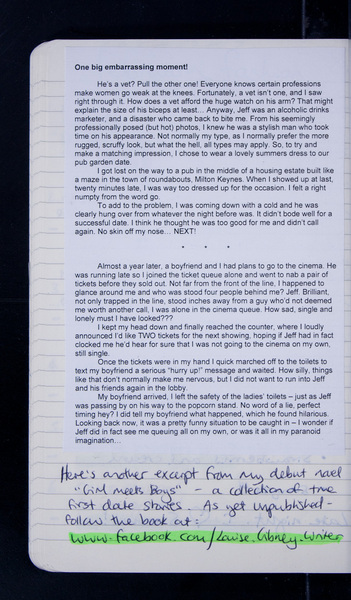 One big embarrassing moment!
He's a vet? Pull the other one! Everyone knows certain professions
make women go weak at the knees. Fortunately, a vet isn't one, and I saw
right through it. How does a vet afford the huge watch on his arm? That might
explain the size of his biceps at least... Anyway, Jeff was an alcoholic drinks
marketer, and a disaster who came back to bite me. From his seemingly
professionally posed (but hot) photos, I knew he was a stylish man who took
time on his appearance. Not normally my type, as I normally prefer the more
rugged, scruffy look, but what the hell, all types may apply. So, to try and
make a matching impression, I chose to wear a lovely summers dress to our
pub garden date.
I got lost on the way to a pub in the middle of a housing estate built like
a maze in the town of roundabouts, Milton Keynes. When I showed up at last,
twenty minutes late, I was way too dressed up for the occasion. I felt a right
numpty from the word go.
To add to the problem, I was coming down with a cold and he was
clearly hung over from whatever the night before was. It didn't bode well for a
successful date. I think he thought he was too good for me and didn't call
again. No skin off my nose... NEXT!
* * *
Almost a year later, a boyfriend and I had plans to go to the cinema. He
was running late so I joined the ticket queue alone and went to nab a pair of
tickets before they sold out. Not far from the front of the line, I happened to
glance around me and who was stood four people behind me? Jeff. Brilliant,
not only trapped in the line, stood inches away from a guy who'd not deemed
me worth another call, I was alone in the cinema queue. How sad, single and
lonely must I have looked???
I kept my head down and finally reached the counter, where I loudly
announced I'd like TWO tickets for the next showing, hoping if Jeff had in fact
clocked me he'd hear for sure that I was not going to the cinema on my own,
still single.
Once the tickets were in my hand I quick marched off to the toilets to
text my boyfriend a serious "hurry up!" message and waited. How silly, things
like that don't normally make me nervous, but I did not want to run into Jeff
and his friends again in the lobby.
My boyfriend arrived, I left the safety of the ladies' toilets – just as Jeff
was passing by on his way to the popcorn stand. No word of a lie, perfect
timing hey? I did tell my boyfriend what happened, which he found hilarious.
Looking back now, it was a pretty funny situation to be caught in – I wonder if
Jeff did in fact see me queuing all on my own, or was it all in my paranoid
imagination...
Here's another excerpt from my debut novel
"Girl meets Boys" - a collection of true
first date stories. As yet unpublished -
follow the book at:
www.facebook.com/Louise.Gibney.Writer